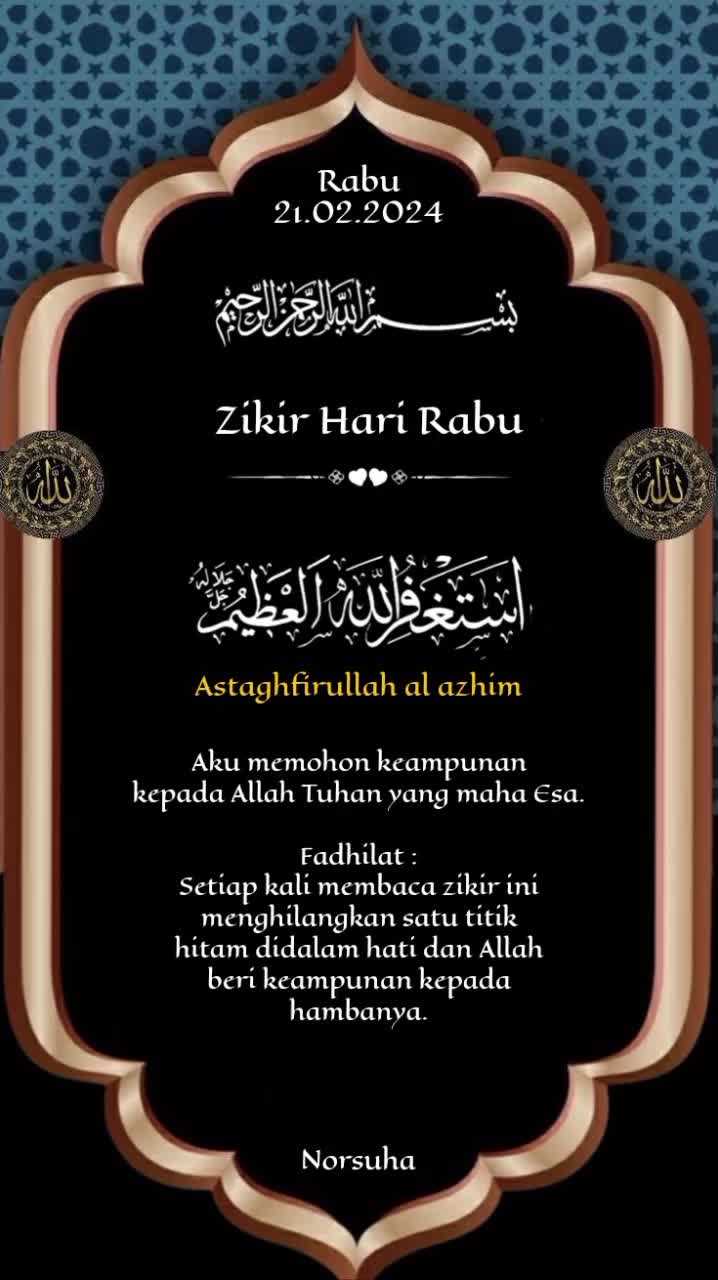 Rabu
21.02.2024
بسم الله الرحمن الرحيم
Zikir Hari Rabu
الله
الله
استغفر الله العظيم
جل جلاله
Astaghfirullah al azhim
Aku memohon keampunan
kepada Allah Tuhan yang maha Esa.
Fadhilat :
Setiap kali membaca zikir ini
menghilangkan satu titik
hitam didalam hati dan Allah
beri keampunan kepada
hambanya.
Norsuha